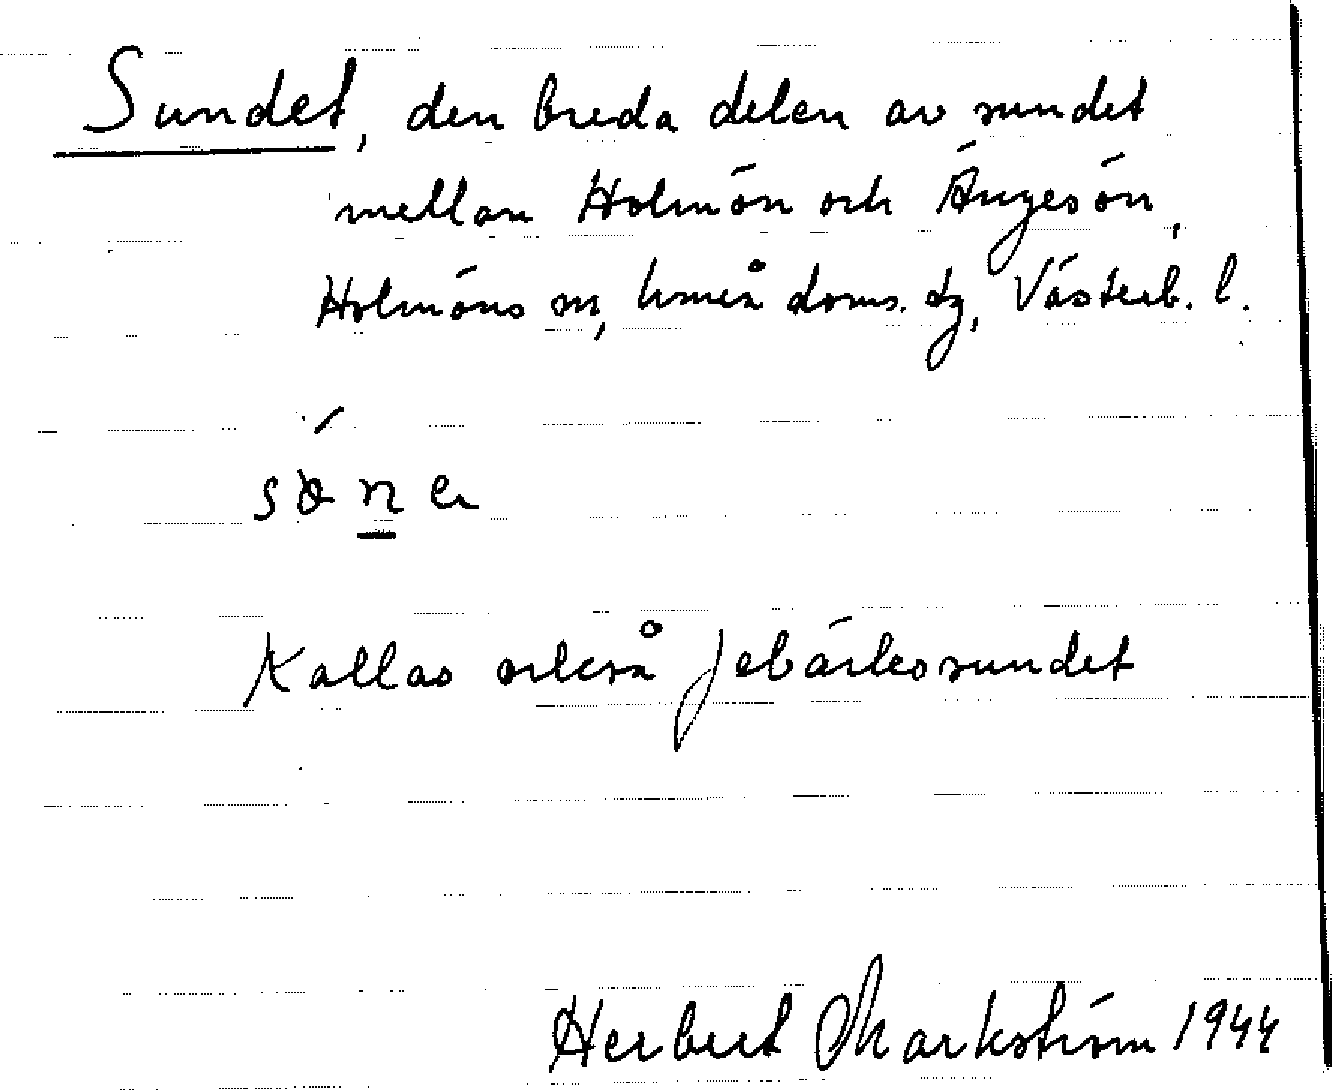 Sundet, den breda delen av sundet
mellan Holmön och Ängesön,
Holmöns sn, Umeå doms. dg, Västerb. l.
Kallas också Jebäckssundet
Herbert Markström 1944